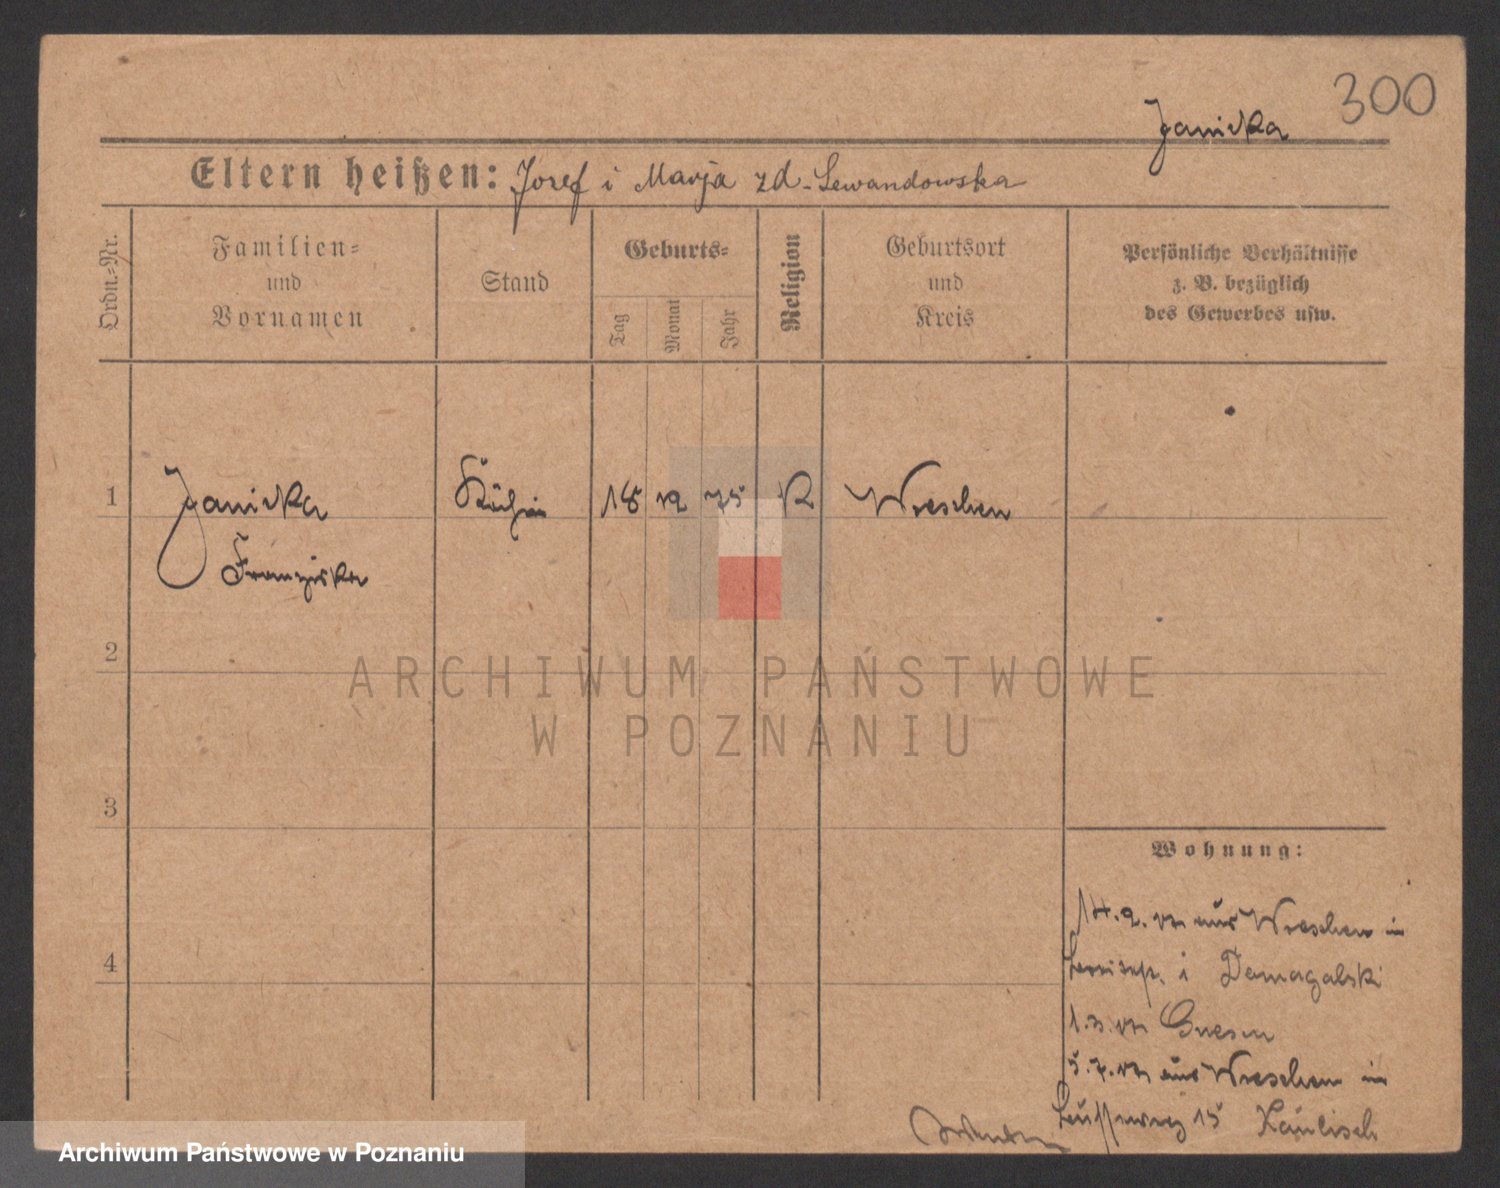 300
Janicka
Eltern heißen: Josef i Marja zd. Lewandowska
Ordn.-Nr.
Familien-
und
Vornamen
Stand
Geburts-
Tag
Monat
Jahr
Religion
Geburtsort
und
Kreis
Persönliche Verhältnisse
z. B. bezüglich
des Gewerbes usw.
1 Janicka Köchin 18 12 75 K Wreschen
Franziska
2
ARCHIWUM PAŃSTWOWE
W POZNANIU
3
Wohnung:
14.2. aus Wreschen in
4
i Domagalski
Gnesen
5.7. aus Wreschen in
15
Archiwum Państwowe w Poznaniu